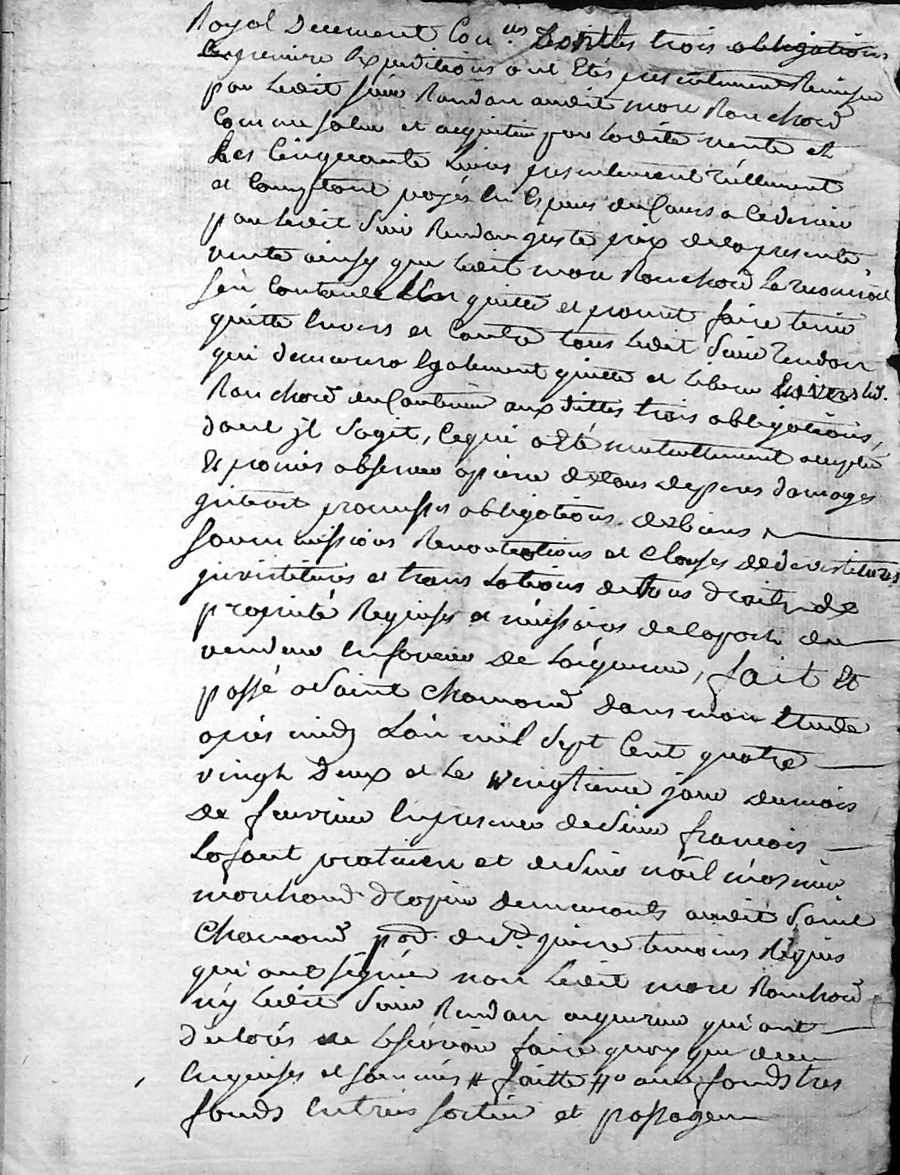 Royal decement Con.<sup>is</sup> Lesdittes trois obligations
En premiere Expeditions ont Etés presentement Remise
par Ledit sieur Randan audit marc Ranchon
Comme solue et acquittée par Ladite vente et
Les Cinquante Livres presentement réellement
et Comptant payés En Especes du Cours a Ce dernier
par Ledit sieur Rendan juste prix de la presente
vente ainsy que Ledit marc Ranchon Le reconnoit
s'en Contente L'En quitte et promet faire tenir
quitte Envers et Contre tous Ledit sieur Rendan
qui demeurera Egalement quitte et Libere Envers led.
Ranchon du Contenu aux dittes trois obligations,
dont jl s'agit, Ce qui a Eté mutuellement accepté
Et promis observer a peine de tous depens damages
interet promesses obligations de biens,
soummissions Renontiations et Clauses de devestitures
jnvestitures et translations de tous droits de
propriété Requises et nécessaires de la part du
vendeur En faveur de L'aiquereur, fait Et
passé a Saint Chamond dans mon Etude
apres midy L'an mil sept Cent quatre
vingt Deux et Le vingtieme jour du mois
de fevrier En presence de sieur francois
Lafont praticien et de sieur nöel
marchand drapier demeurants audit Saint
Chamond temoins Réquis
qui ont signés non Ledit marc Ranchon
n'y Ledit sieur Rendan acquereur qui ont
déclarés ne Le sçavoir faire quoy que deument
Enquises et sommés # faitte # aux fonds tres
fonds Entrées sorties et passages